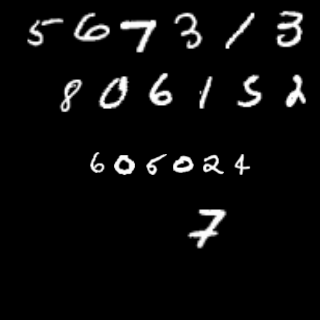 567313
806152
605024
7